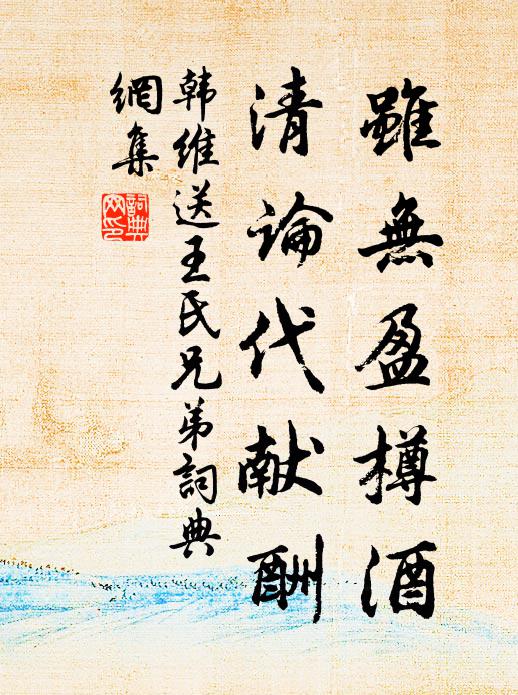 雖無盈樽酒
清論代献酬
韩维送王氏兄弟詞典
網集
詞典网印